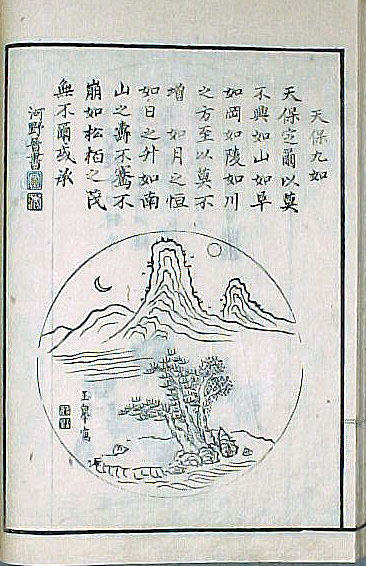 天保九如
天保定爾以莫
不興如山如阜
如岡如陵如川
之方至以莫不
增 如月之恒
如日之升如南
山之壽不騫不
崩如松柏之茂
無不爾或承
河野晉書
玉皐寫